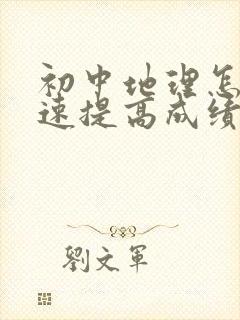 初中地理怎
速提高成绩
劉文軍